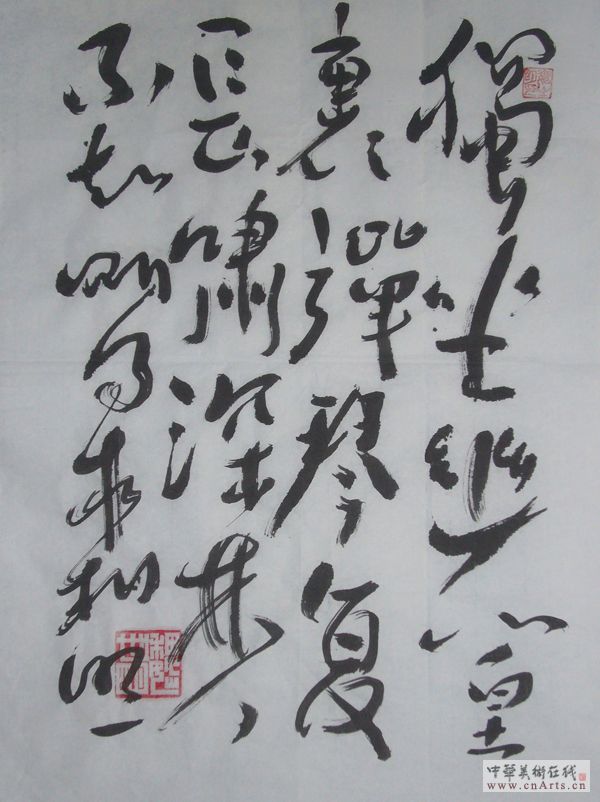 獨坐幽篁
裏彈琴复
長嘯深林人
不知明月来相照
中華美術在线
www.cnArts.cn